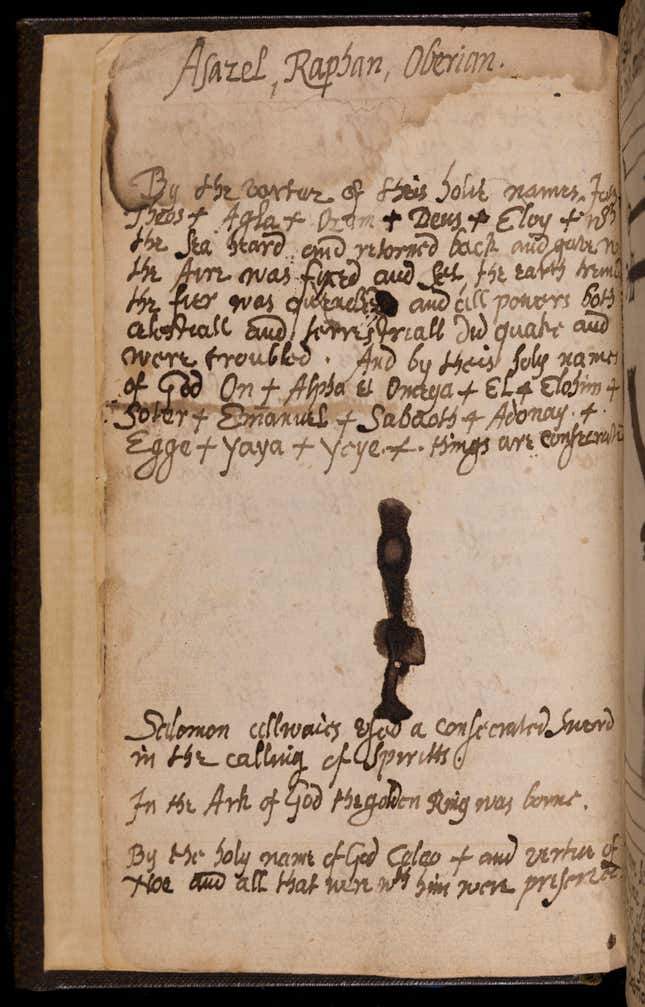 Asazel, Raphan, Oberion.
By the vertue of theis holie names
Theos + Agla + + Deus + Eloy +
the sea heard and retorned back and gave
the Aire was fyxed and the earth
the fier was and all powers both
celestiall and terrestriall did quake and
were troubled. And by theis holy names
of God On + Alpha et Omega + El + Elohim +
Soter + Emanuel + Sabaoth + Adonay. +.
Egge + yaya + ycye. +. things are
Solomon allwaies used a consecrated sword
in the calling of Spiritts.
In the Ark of God the golden Ring was borne.
By the holy name of God + and vertue of
Noe and all that were wth him were